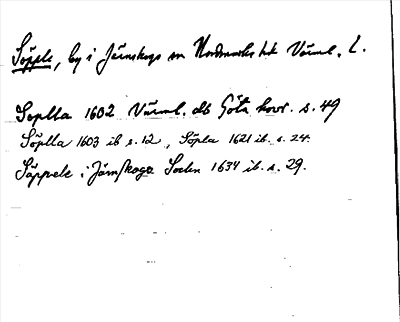 Söpple, by i Järnskogs sn Nordmarks hd Värml. l.
Soplla 1602 Värml. db Göta hovr. s. 49
Söplla 1603 ib s. 12, Söpla 1621 ib. s. 24.
Söppele i Järnskoga Sochn 1634 ib. s. 29.